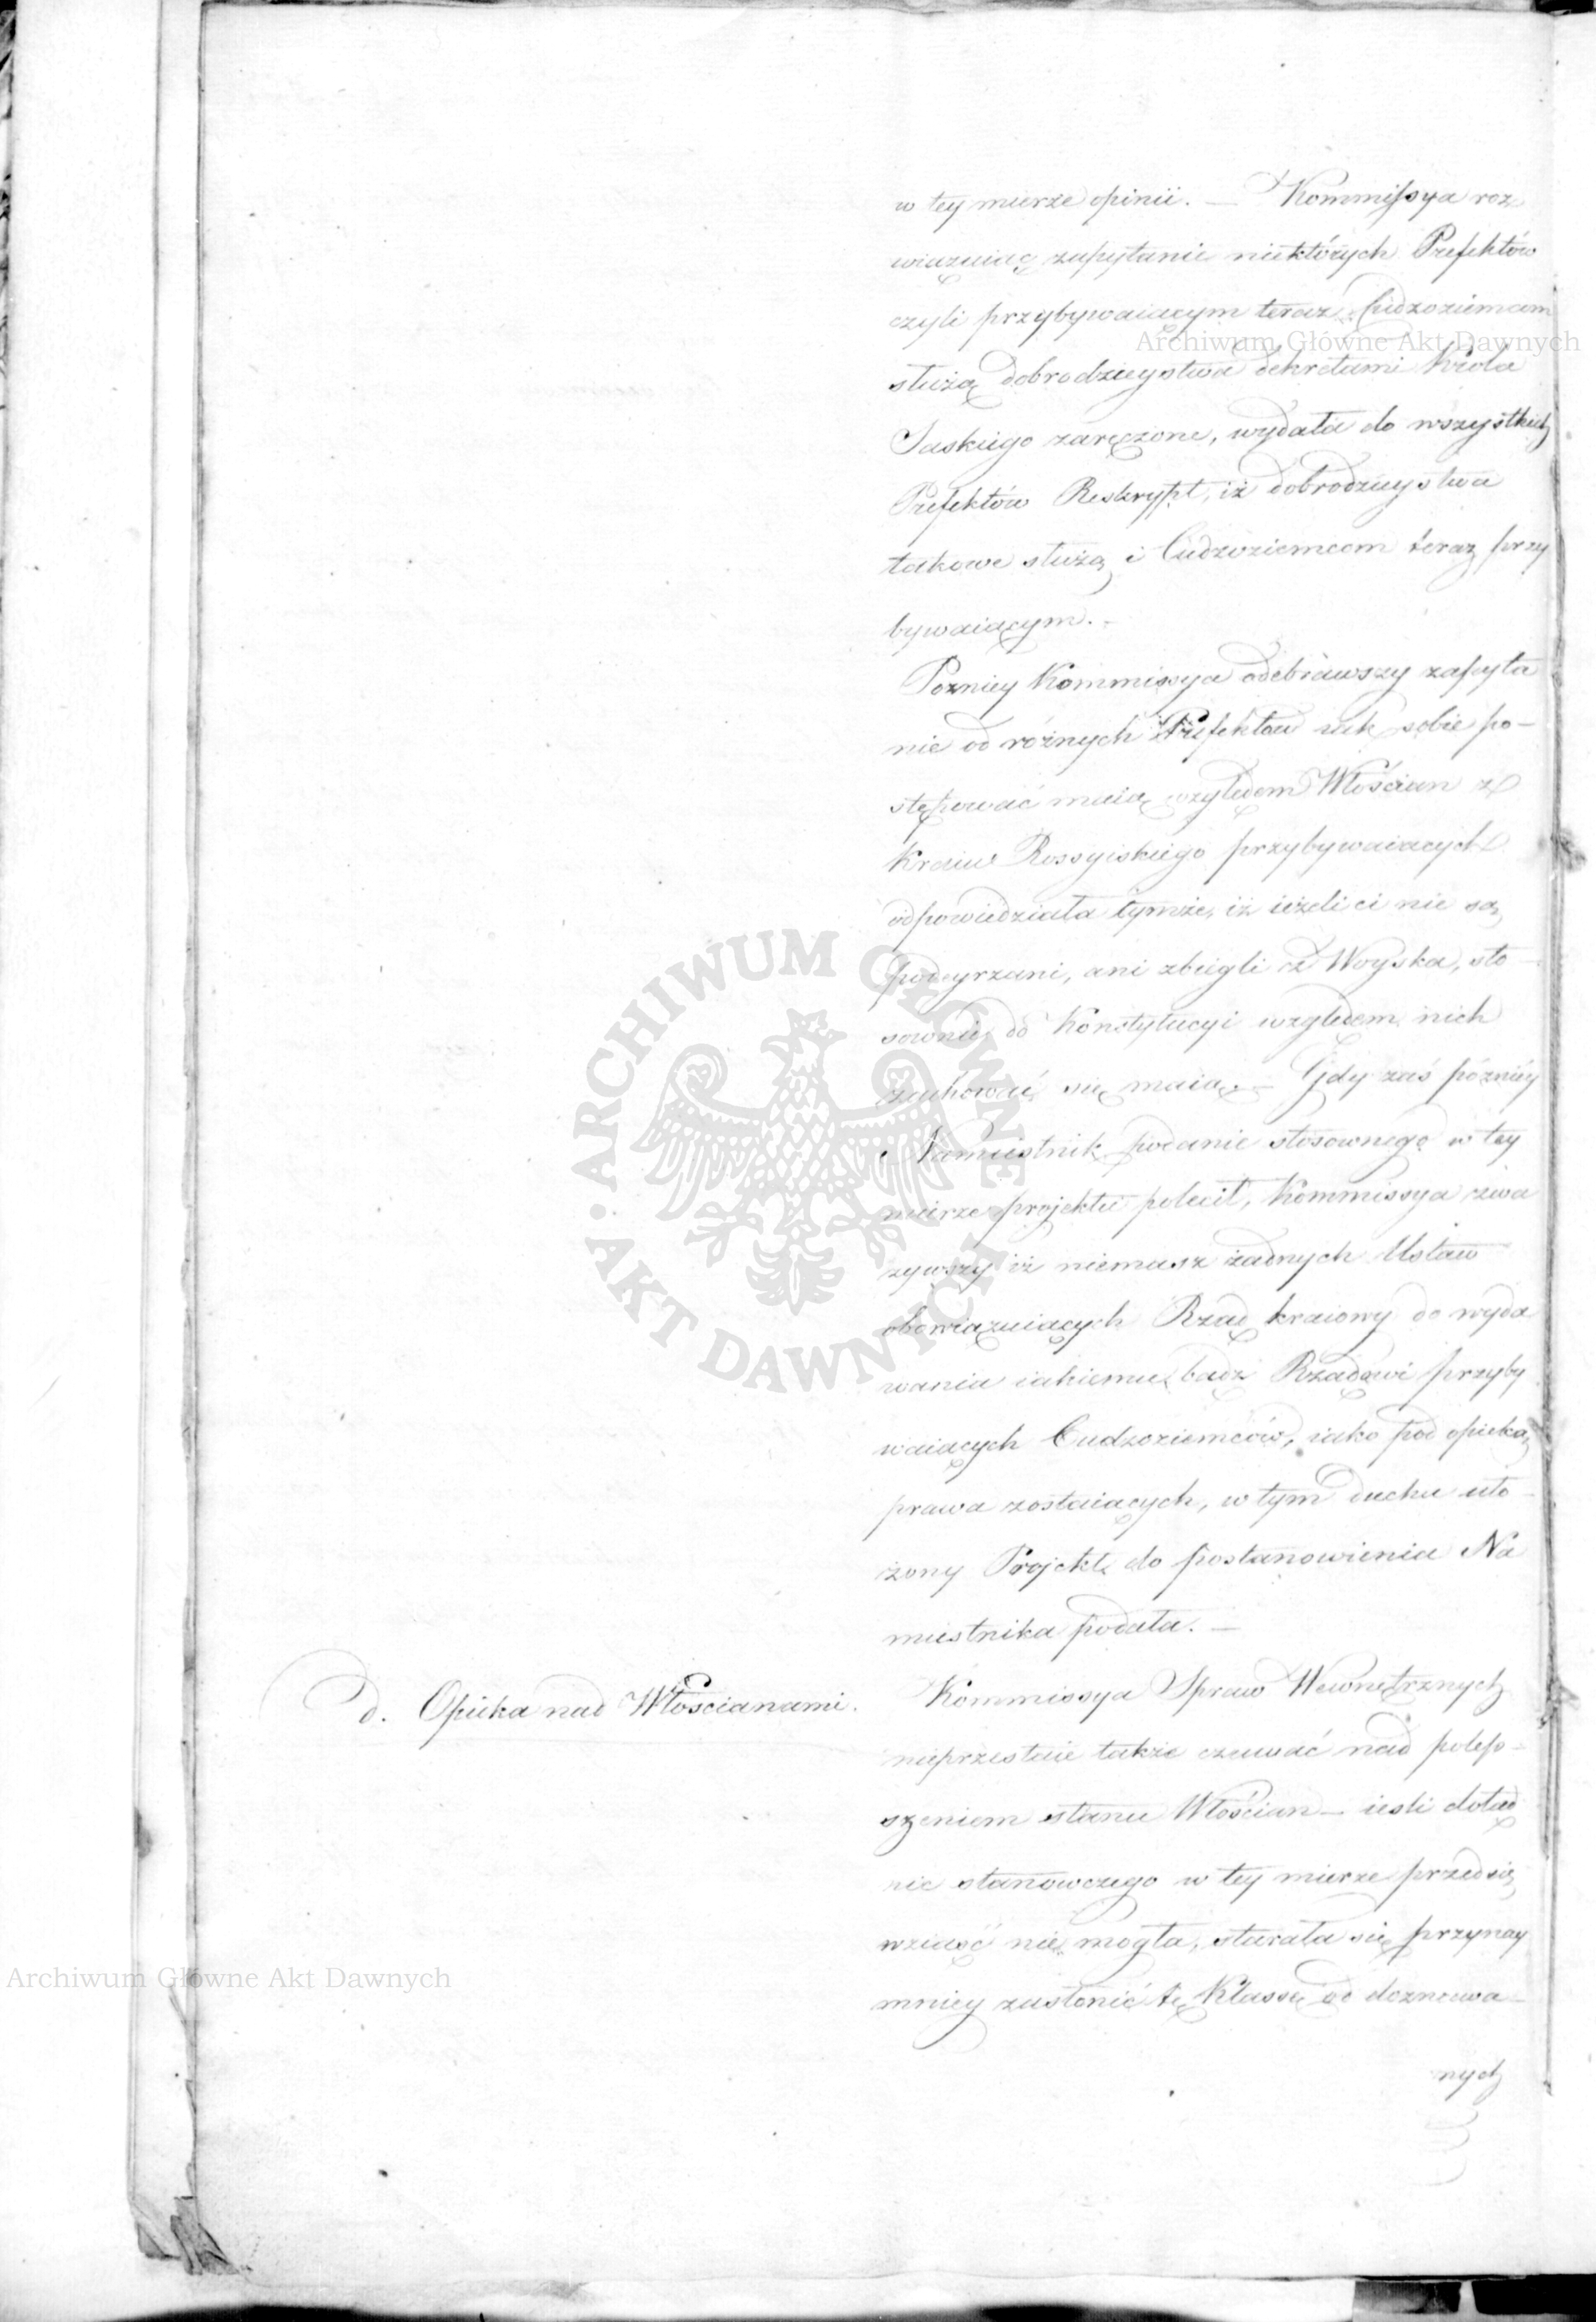 w tey mierze opinii. — Kommissya roz
wiązuiąc zapytanie niektórych Prefektów
czyli przybywaiącym teraz Cudzoziemcom
Archiwum Główne Akt Dawnych
służą dobrodzieystwa dekretami Króla
Saskiego zaręczone, wydała do wszystkich
Prefektów Reskrypt, iż dobrodzieystwa
takowe służą i Cudzoziemcom teraz przy
bywaiącym. -
Pozniey Kommissya odebrawszy zapyta
nie od różnych Prefektów iak sobie po-
stępować maią względem Włościan z
Kraiu Rossyiskiego przybywaiących
odpowiedziała tymże, iż ieżeli ci nie są
podeyrzani, ani zbiegli z Woyska, sto-
sownie do Konstytucyi względem nich
zachować się maią. — Gdy zaś pózniéy
Namiestnik podanie stosownego w tey
mierze projektu polecił, Kommissya zwa
żywszy iż niemasz żadnych Ustaw
obowiązuiących Rząd kraiowy do wyda
wania iakiemu bądź Rządowi przyby
waiących Cudzoziemców, iako pod opieką
prawa zostaiących, w tym duchu uło-
żony Projekt do postanowienia Na
miestnika podała. —
d. Opieka nad Włoscianami.
Kommissya Spraw Wewnętrznych
nieprzestaie także czuwać nad polep-
szeniem stanu Włościan — iesli dotąd
nic stanowczego w tey mierze przedsię
wziąść nie mogła, starała się przynay
mniey zasłonić tę Klassę od doznawa-
nych
Archiwum Główne Akt Dawnych
ARCHIWUM GŁÓWNE
AKT DAWNYCH